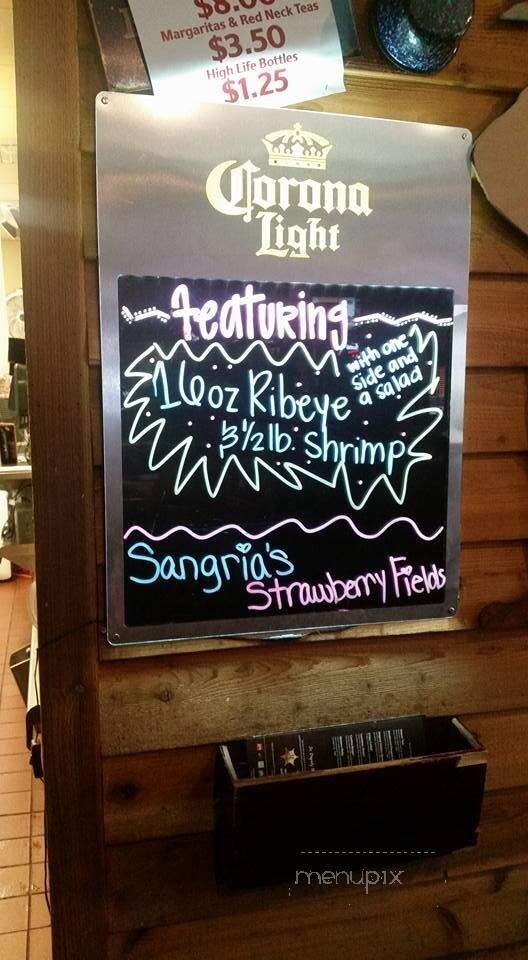 $8.00
Margaritas & Red Neck Teas
$3.50
High Life Bottles
$1.25
Corona
Light
Featuring
with one
side and
a salad
16oz Ribeye
3 1/2 lb. Shrimp
Sangria's
Strawberry Fields
menupix